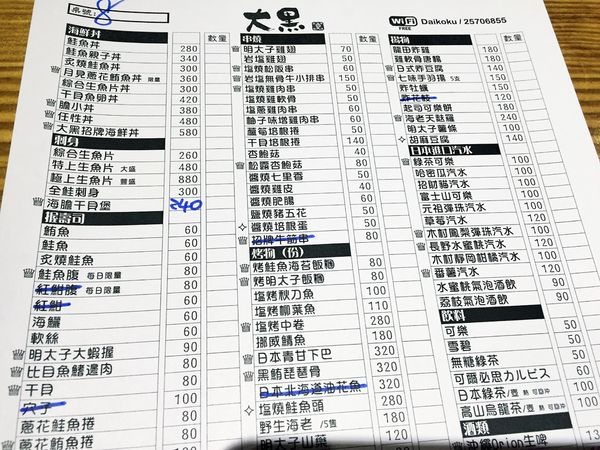 桌號: 8
大黑
WiFi FREE Daikoku / 25706855
海鮮丼 數量
鮭魚丼 280
鮭魚親子丼 340
炙燒鮭魚丼 300
月見蔥花鮪魚丼 限量 360
綜合生魚片丼 320
干貝魚卵丼 420
膽小丼 340
任性丼 480
大黑招牌海鮮丼 580
刺身
綜合生魚片 260
特上生魚片 大盛 480
極上生魚片 豐盛 880
全鮭刺身 300
海膽干貝堡 240
握壽司
鮪魚 60
鮭魚 60
炙燒鮭魚 60
鮭魚腹 每日限量 80
紅魽腹 每日限量 80
紅魽 60
海鱺 60
軟絲 60
明太子大蝦握 90
比目魚鰭邊肉 80
干貝 80
穴子 100
蔥花鮭魚捲 80
蔥花鮪魚捲 80
串燒 數量
明太子雞翅 70
岩塩雞翅 50
塩燒松阪串 60
岩塩無骨牛小排串 150
塩燒雞肉串 50
塩燒雞軟骨 50
塩蔥雞肉串 50
柚子味增雞肉串 60
蘆筍培根捲 50
干貝培根捲 140
杏鮑菇 40
松露杏鮑菇 80
醬燒七里香 50
醬燒雞皮 40
醬燒肥腸 50
鹽燒豬五花 50
醬燒培根蛋 50
招牌牛筋串 80
烤物（份）
烤鮭魚海苔飯糰 60
烤明太子飯糰 60
塩烤秋刀魚 100
塩烤柳葉魚 110
塩烤中卷 280
挪威鯖魚 180
日本青甘下巴 320
黑鮪琵琶骨 320
日本北海道油花魚 320
塩燒鮭魚頭 280
野生海老 /5隻 180
明太子山藥 120
揚物 數量
龍田炸雞 180
雞軟骨唐揚 180
日式炸豆腐 140
七味手羽揚 5支 150
炸牡蠣 150
炸花枝 180
起司可樂餅 180
海老天麩羅 240
明太子薯條 100
胡麻豆腐 140
日本進口汽水
綠茶可樂 100
哈密瓜汽水 100
招財貓汽水 100
富士山可樂 100
元祖彈珠汽水 100
草莓汽水 70
木村鳳梨彈珠汽水 100
長野水蜜桃汽水 100
木村靜岡柑橘汽水 120
番薯汽水 120
水蜜桃氣泡酒飲 90
荔枝氣泡酒飲 90
飲料
可樂 50
雪碧 50
無糖綠茶 50
可爾必思カルピス 60
日本綠茶/壺 熱 可回沖 100
高山烏龍茶/壺 熱 可回沖 100
酒類
沖繩Orion生啤